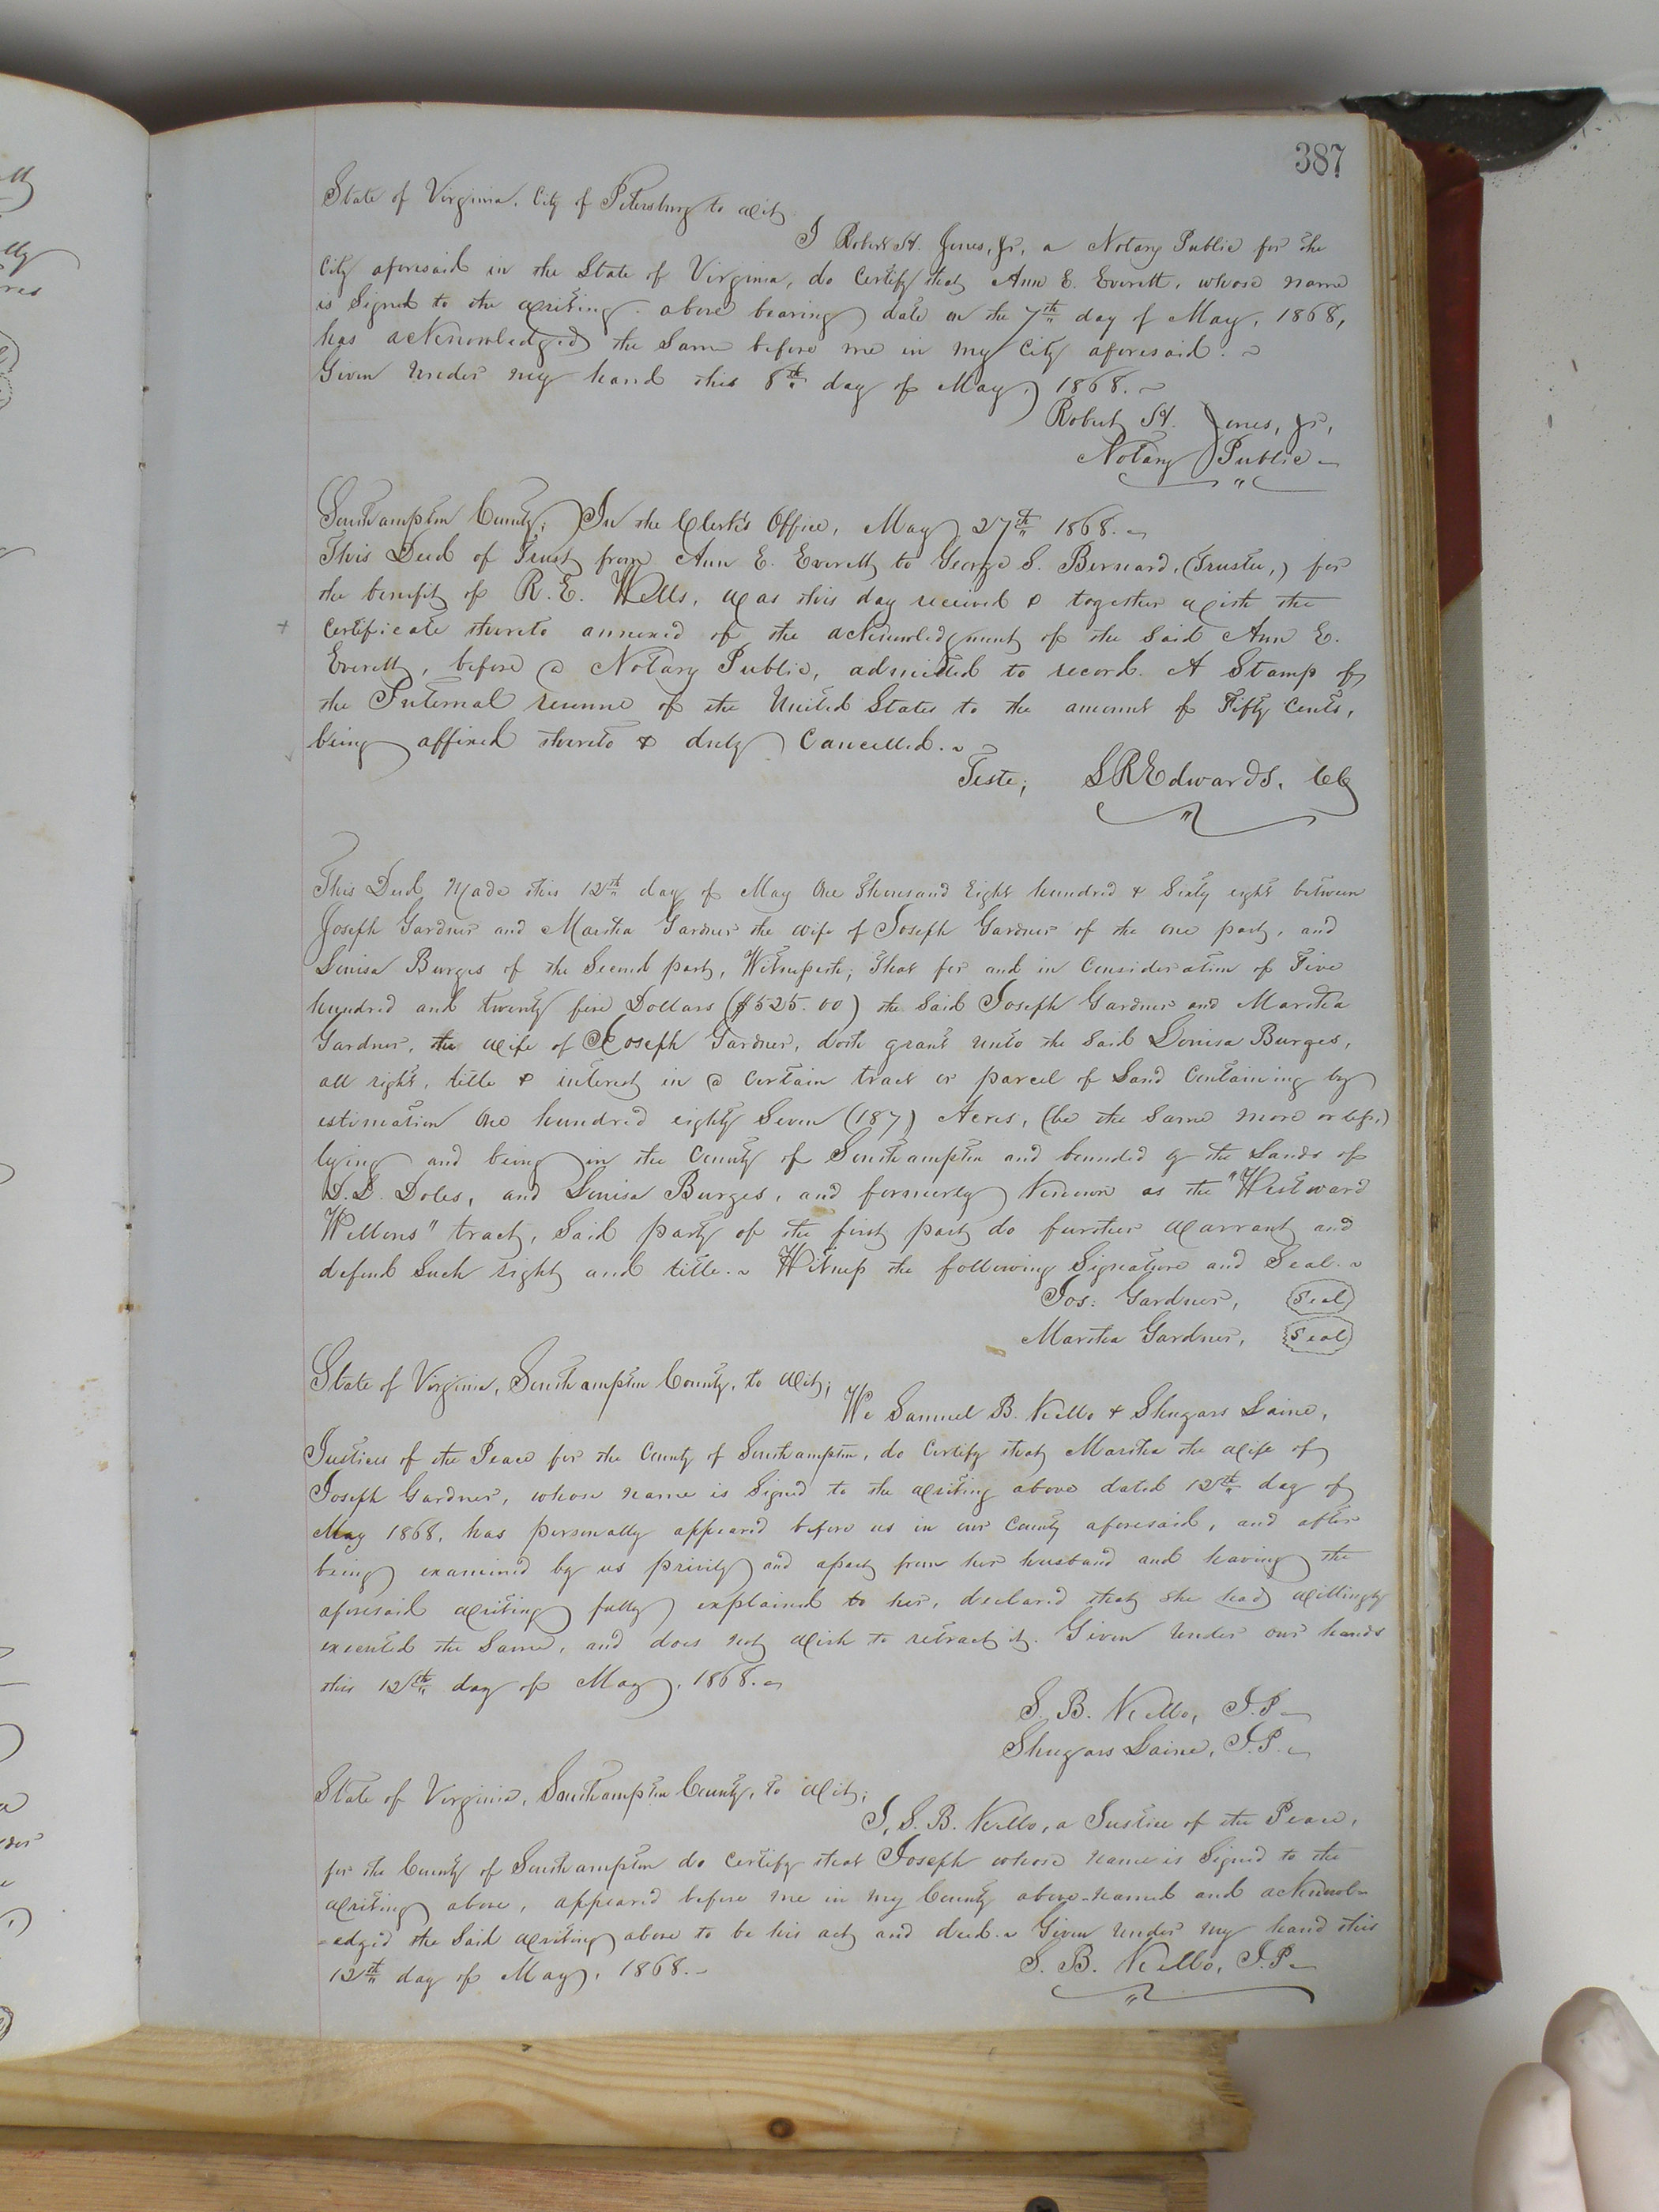 387
State of Virginia. City of Petersburg to wit
I Robert H. Jones, Jr, a Notary Public for the
City aforesaid in the State of Virginia, do Certify that Ann E. Everett, whose name
is Signed to the writing above bearing date on the 7th day of May, 1868,
has acknowledged the Same before me in my City aforesaid.
Given under my hand this 8th day of May, 1868.
Robert H. Jones, Jr,
Notary Public
Southampton County; In the Clerk's Office, May 27th 1868.
This Deed of Trust from Ann E. Everett to George S. Bernard, (Trustee,) for
the benefit of R. E. Wells, was this day received & together with the
Certificate thereto annexed of the acknowledgment of the Said Ann E.
Everett, before a Notary Public, admitted to record. A Stamp of
the Internal revenue of the United States to the amount of Fifty Cents,
being affixed thereto & duly Cancelled.
Teste; LREdwards, CC
This Deed, Made this 12th day of May One Thousand Eight hundred & Sixty eight between
Joseph Gardner and Martha Gardner the wife of Joseph Gardner of the one part, and
Louisa Burges of the Second part, Witnesseth; That for and in Consideration of Five
hundred and twenty five Dollars ($525.00) the Said Joseph Gardner and Martha
Gardner, the wife of Joseph Gardner, doth grant unto the Said Louisa Burges,
all right, title & interest in a Certain tract or parcel of Land Containing by
estimation One hundred eighty Seven (187) Acres, (be the Same more or less,)
lying and being in the County of Southampton and bounded by the Lands of
D. D. Doles, and Louisa Burges, and formerly Known as the "Westward
Wellons" tract, Said party of the first part do further warrant and
defend Such right and title. Witness the following Signature and Seal.
Jos: Gardner, Seal
Martha Gardner, Seal
State of Virginia, Southampton County, to wit;
We Samuel B. Kello & Shugars Laine,
Justices of the Peace for the County of Southampton, do Certify that Martha the wife of
Joseph Gardner, whose name is Signed to the writing above dated 12th day of
May 1868, has personally appeared before us in our County aforesaid, and after
being examined by us privily and apart from her husband and having the
aforesaid writing fully explained to her, declared that she had willingly
executed the Same, and does not wish to retract it. Given Under our hands
this 12th day of May, 1868.
S. B. Kello, J.P
Shugars Laine, J.P.
State of Virginia, Southampton County, to wit;
I, S. B. Kello, a Justice of the Peace,
for the County of Southampton do Certify that Joseph whose name is Signed to the
writing above, appeared before me in my County above-named and acknowl-
-edged the Said writing above to be his act and deed. Given under my hand this
12th day of May, 1868.
S. B. Kello, J.P.